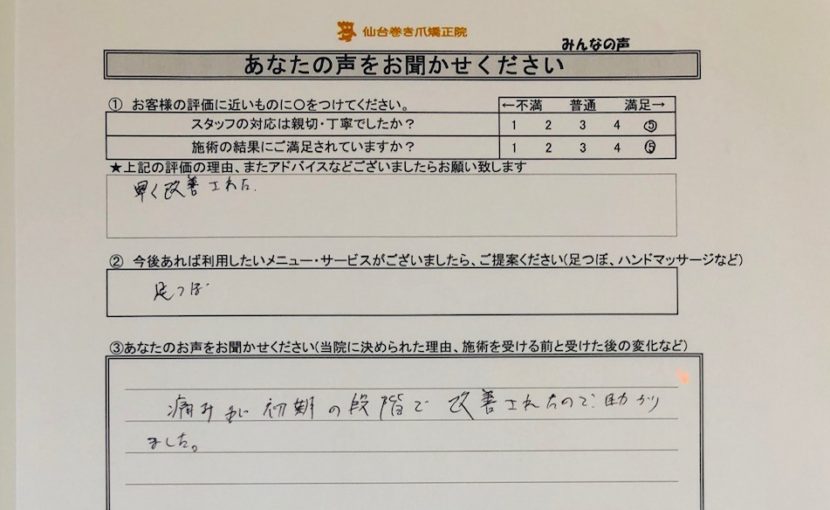 仙台巻き爪矯正院
みんなの声
あなたの声をお聞かせください
① お客様の評価に近いものに○をつけてください。 ←不満 普通 満足→
スタッフの対応は親切・丁寧でしたか? 1 2 3 4 ⑤
施術の結果にご満足されていますか? 1 2 3 4 ⑤
★上記の評価の理由、またアドバイスなどございましたらお願い致します
早く改善された.
② 今後あれば利用したいメニュー・サービスがございましたら、ご提案ください(足つぼ、ハンドマッサージなど)
足つぼ
③あなたのお声をお聞かせください(当院に決められた理由、施術を受ける前と受けた後の変化など)
痛み 初期の段階で 改善されたので 助かり
ました。